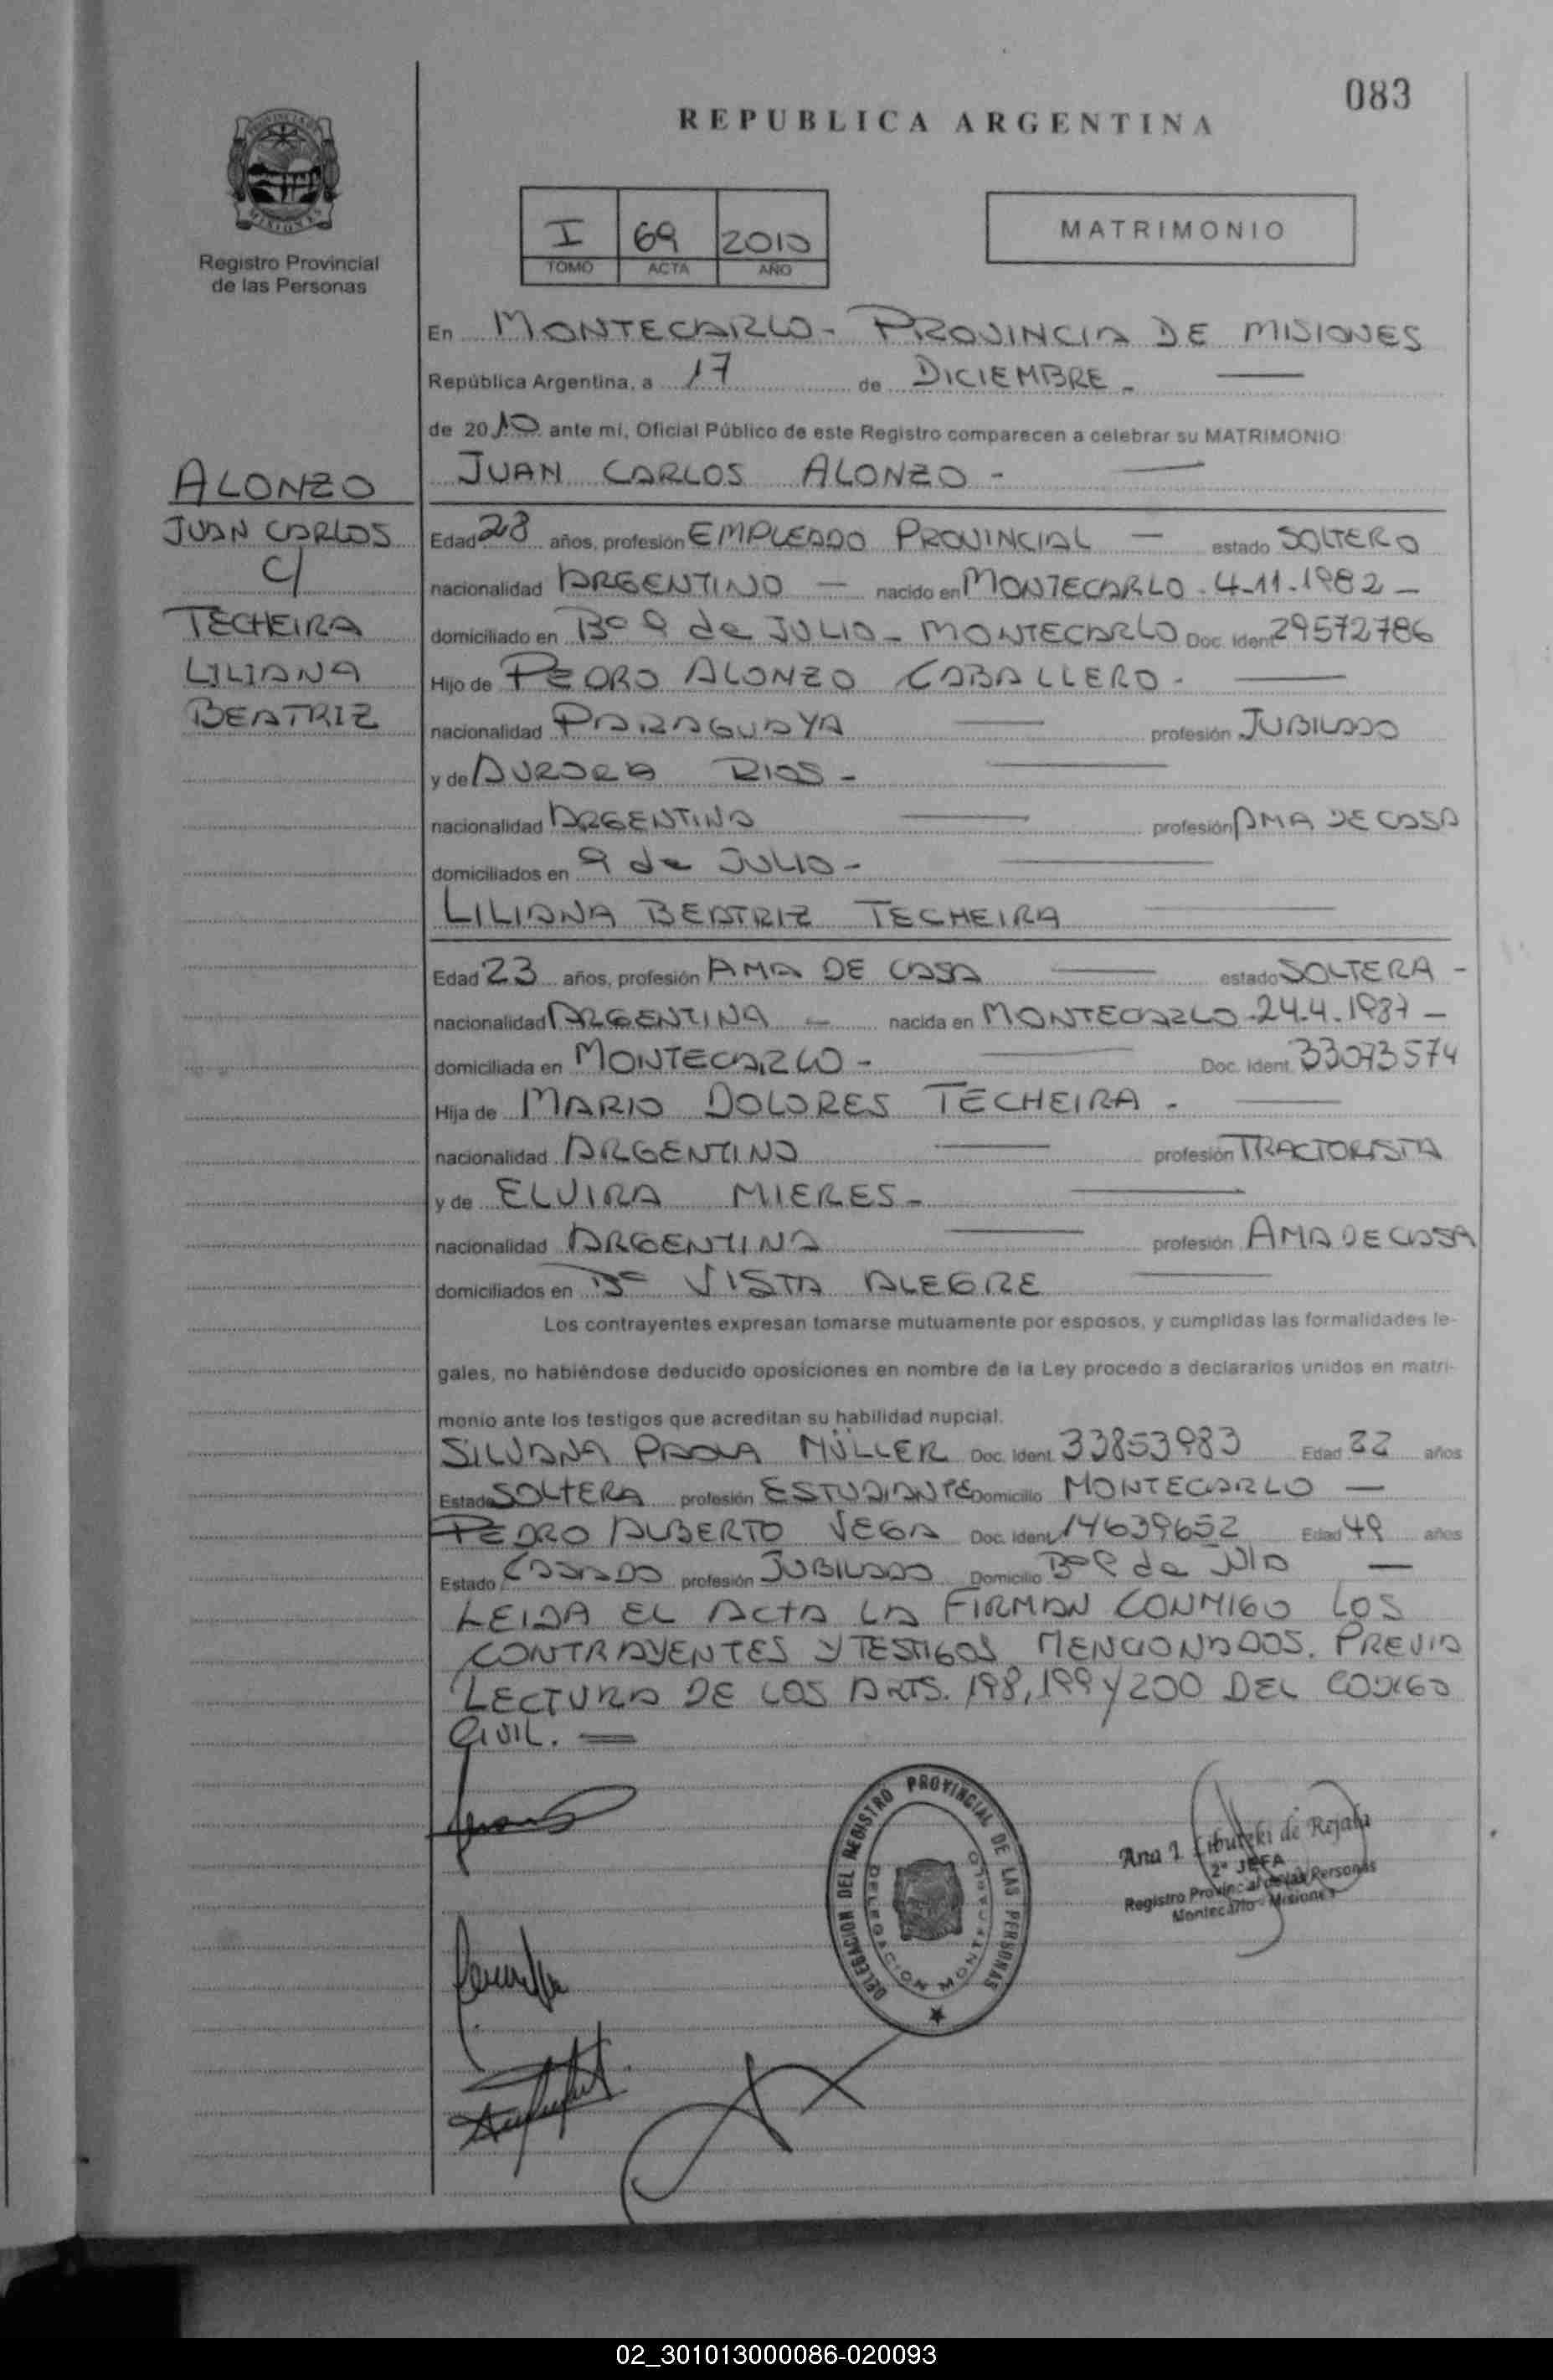 083
REPUBLICA ARGENTINA
PROVINCIA DE
MISIONES
Registro Provincial
de las Personas
I 69 2010
TOMO ACTA AÑO
MATRIMONIO
En MONTECARLO - PROVINCIA DE MISIONES
República Argentina, a 17 de DICIEMBRE -
de 2010 ante mí, Oficial Público de este Registro comparecen a celebrar su MATRIMONIO
JUAN CARLOS ALONZO -
ALONZO
JUAN CARLOS
C/
TECHEIRA
LILIANA
BEATRIZ
Edad 28 años, profesión EMPLEADO PROVINCIAL — estado SOLTERO
nacionalidad ARGENTINO — nacido en MONTECARLO - 4-11-1982 -
domiciliado en Bº 9 de JULIO - MONTECARLO Doc. Ident 29572786
Hijo de PEDRO ALONZO CABALLERO -
nacionalidad PARAGUAYA profesión JUBILADO
y de AURORA RIOS -
nacionalidad ARGENTINA profesión AMA DE CASA
domiciliados en 9 de JULIO -
LILIANA BEATRIZ TECHEIRA
Edad 23 años, profesión AMA DE CASA estado SOLTERA -
nacionalidad ARGENTINA - nacida en MONTECARLO - 24.4.1987 -
domiciliada en MONTECARLO - Doc. Ident. 33073574
Hija de MARIO DOLORES TECHEIRA -
nacionalidad ARGENTINO profesión TRACTORISTA
y de ELVIRA MIERES -
nacionalidad ARGENTINA profesión AMA DE CASA
domiciliados en Bº VISTA ALEGRE
Los contrayentes expresan tomarse mutuamente por esposos, y cumplidas las formalidades le-
gales, no habiéndose deducido oposiciones en nombre de la Ley procedo a declararlos unidos en matri-
monio ante los testigos que acreditan su habilidad nupcial.
SILVANA PAOLA MÜLLER Doc. Ident. 33853983 Edad 22 años
Estado SOLTERA profesión ESTUDIANTE Domicilio MONTECARLO —
PEDRO ALBERTO VEGA Doc. Ident 14639652 Edad 49 años
Estado CASADO profesión JUBILADO Domicilio Bº 9 de JULIO —
LEIDA EL ACTA LA FIRMAN CONMIGO LOS
CONTRAYENTES Y TESTIGOS MENCIONADOS. PREVIA
LECTURA DE LOS ARTS. 198, 199 Y 200 DEL CODIGO
CIVIL. =
DELEGACION DEL REGISTRO PROVINCIAL DE LAS PERSONAS
DELEGACION MONTECARLO
Ana I. de Rejala
2ª JEFA
Registro Provincial de las Personas
Montecarlo - Misiones
02_301013000086-020093